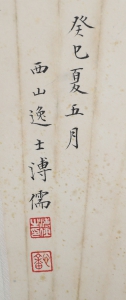 癸巳夏五月
西山逸士溥儒